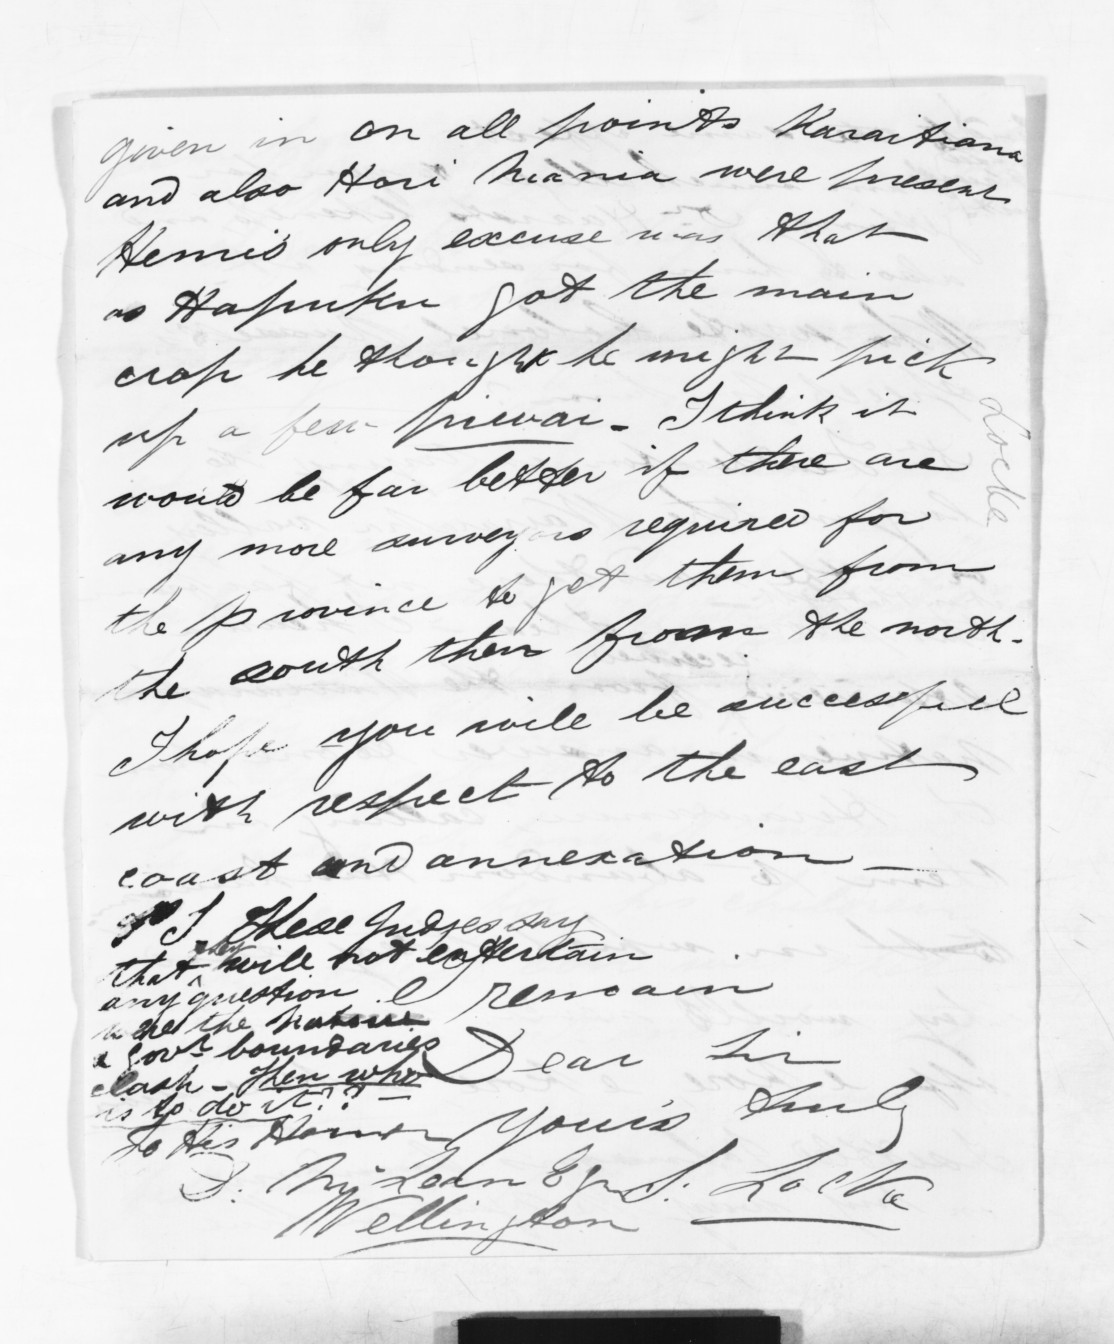 given in on all points Karaitiana
and also Hori Niania were present
Hemis only excuse was that
as Hapuku got the main
crop he thought he might pick
up a few piwai - I think it
would be far better if there are
any more surveyors required for
the province to get them from
the south then from the north -
I hope you will be successful
with respect to the east
coast and annexation -
P S These Judges say
that they will not entertain
any question
where the Native
& Govt boundaries
clash - Then who
is to do it??
I remain
Dear Sir
Yours truly
S. Locke
To His Honor
D. McLean Eqr
Wellington
Locke